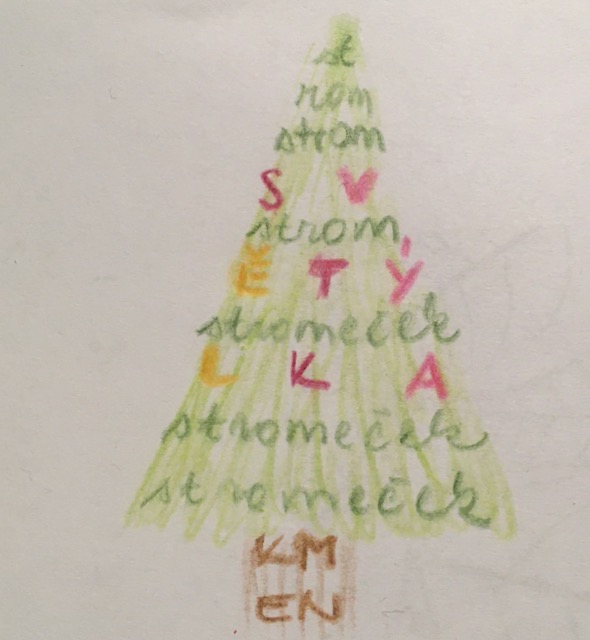 st
rom
strom
S V
strom
Ě T Ý
stromeček
L K A
stromeček
stromeček
KM
EN